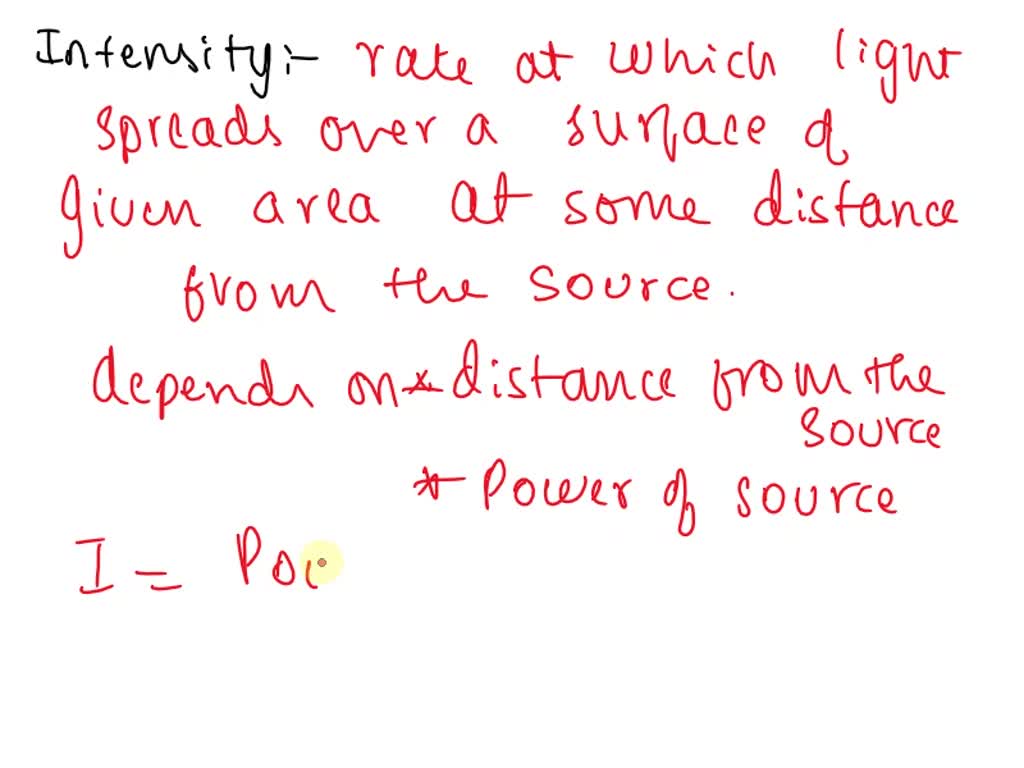 Intensity:- rate at which light
spreads over a surface of
given area at some distance
from the source.
depends on * distance from the
source
* Power of source
I = Po